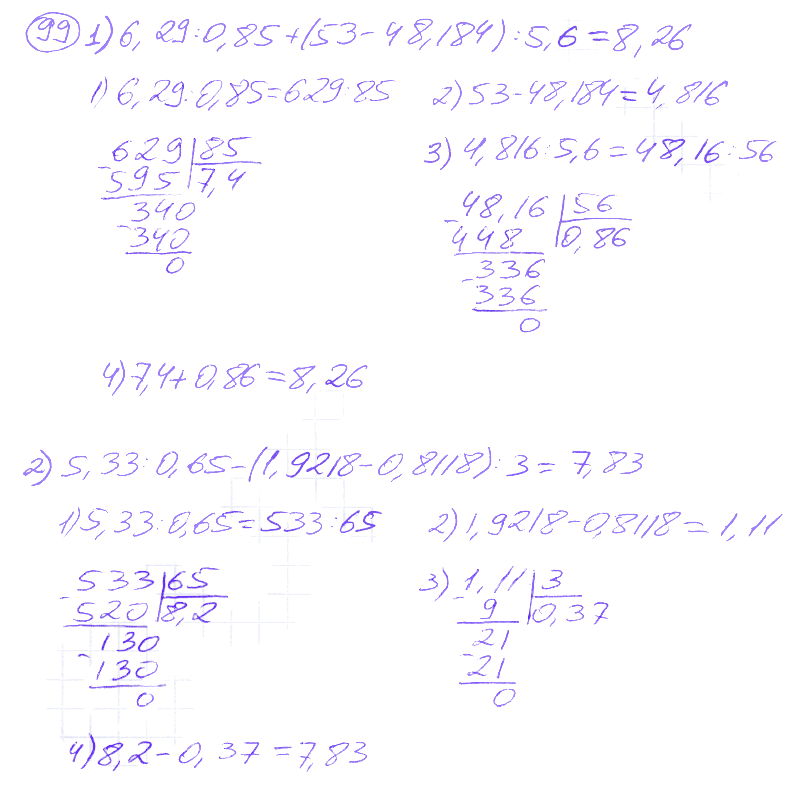 99 1) 6,29:0,85+(53-48,184):5,6=8,26
1) 6,29:0,85=629:85
2) 53-48,184=4,816
629 | 85
- 595 | 7,4
340
- 340
0
3) 4,816:5,6=48,16:56
- 48,16 | 56
448 | 0,86
- 336
336
0
4) 7,4+0,86=8,26
2) 5,33:0,65-(1,9218-0,8118):3=7,83
1) 5,33:0,65=533:65
2) 1,9218-0,8118=1,11
- 533 | 65
520 | 8,2
- 130
130
0
3) - 1,11 | 3
9 | 0,37
- 21
21
0
4) 8,2-0,37=7,83